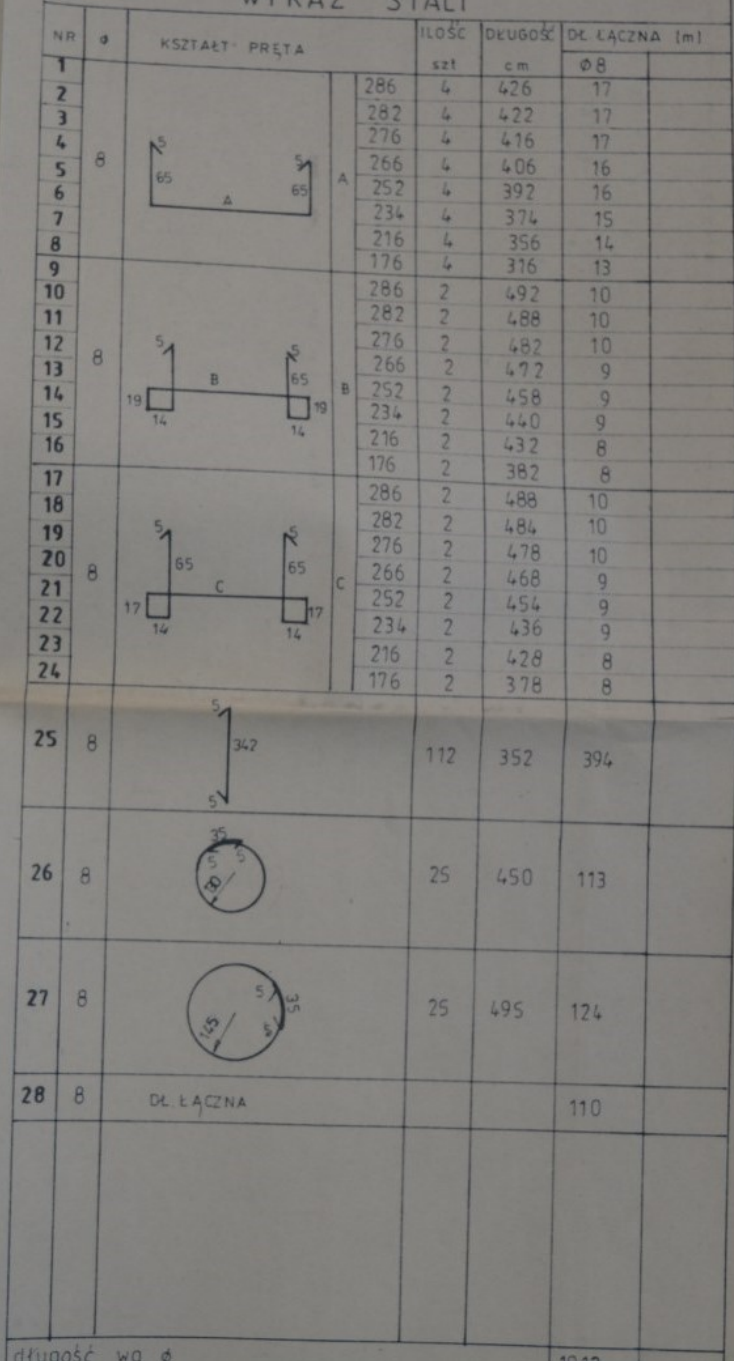 WYKAZ STALI
NR ø KSZTAŁT PRĘTA ILOŚĆ DŁUGOŚĆ DŁ. ŁĄCZNA [m]
szt cm Ø8
1 286 4 426 17
2 282 4 422 17
3 276 4 416 17
4 266 4 406 16
5 252 4 392 16
6 234 4 374 15
7 216 4 356 14
8 176 4 316 13
8 5 65 A 5 65 A
9 286 2 492 10
10 282 2 488 10
11 276 2 482 10
12 266 2 472 9
13 252 2 458 9
14 234 2 440 9
15 216 2 432 8
16 176 2 382 8
8 5 B 5 65 19 14 19 14 B
17 286 2 488 10
18 282 2 484 10
19 276 2 478 10
20 266 2 468 9
21 252 2 454 9
22 234 2 436 9
23 216 2 428 8
24 176 2 378 8
8 5 65 C 5 65 17 14 17 14 C
25 8 5 342 5 112 352 394
26 8 35 5 5 25 450 113
27 8 145 5 5 35 25 495 124
28 8 DŁ. ŁĄCZNA 110
długość wg ø